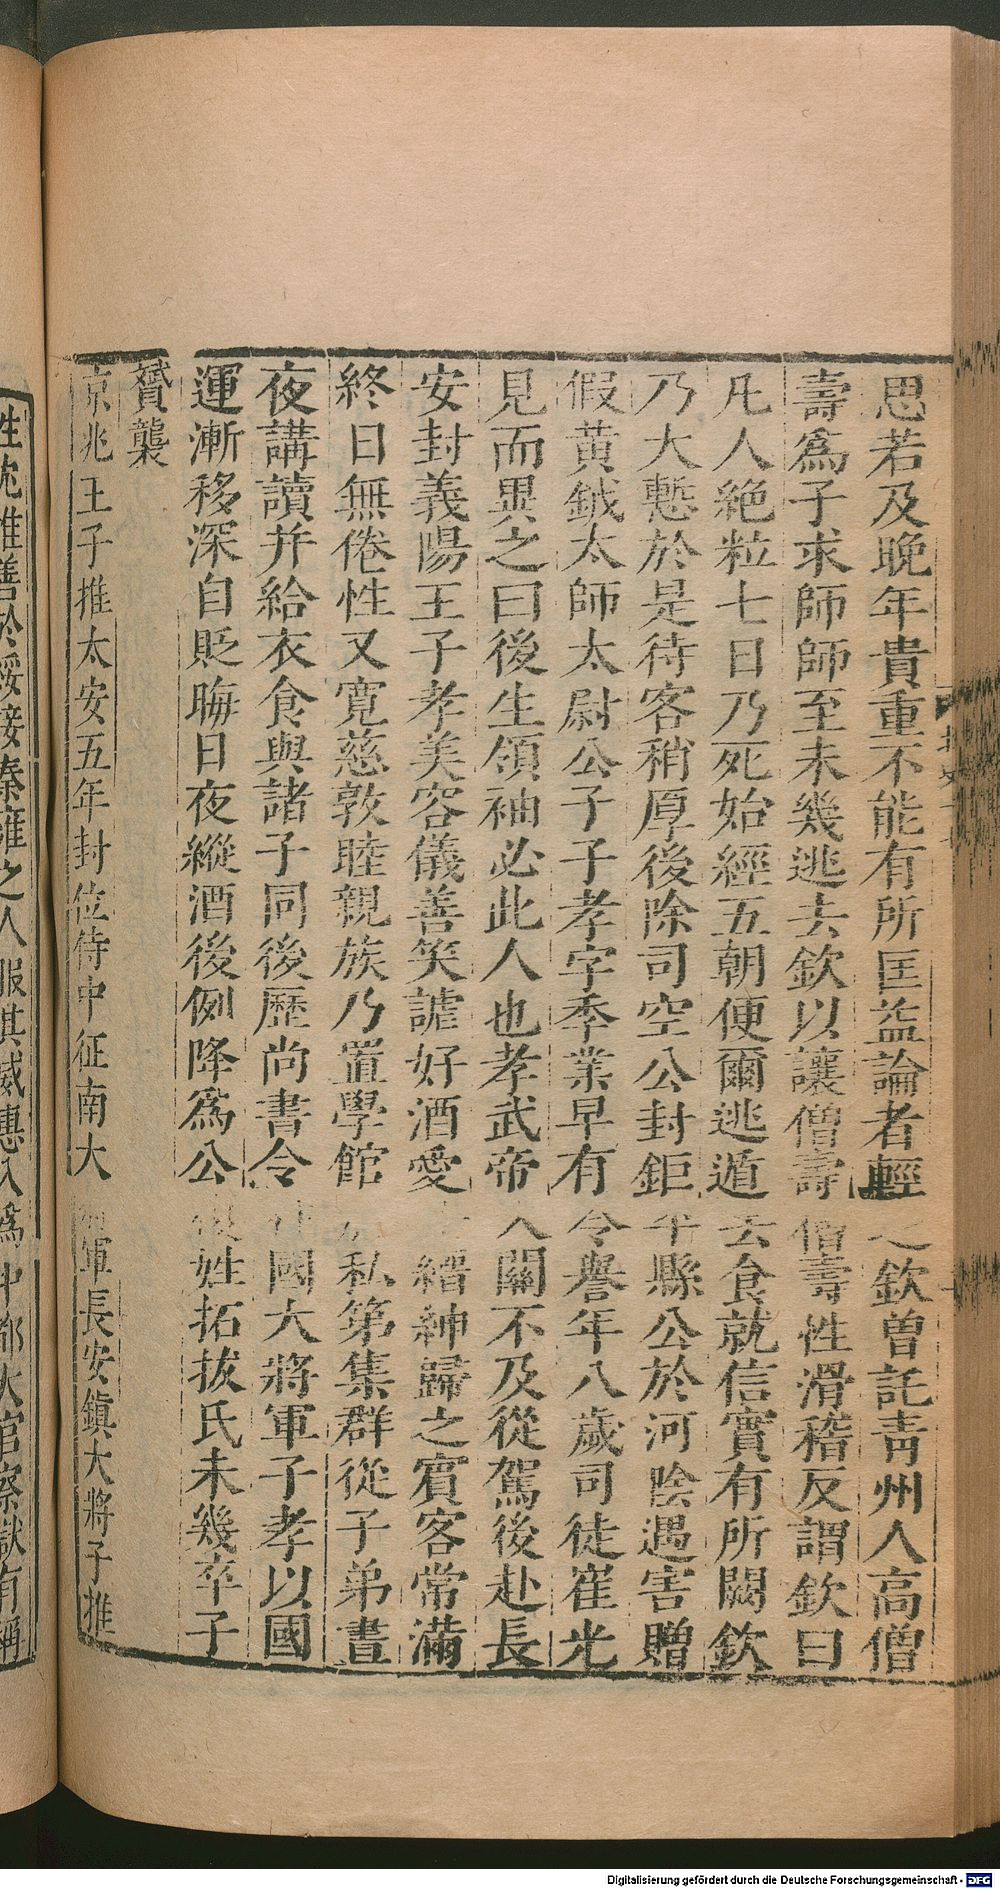 思若及晚年貴重不能有所匡益論者輕之欽曾託青州人高僧
壽爲子求師師至未幾逃去欽以讓僧壽僧壽性滑稽反謂欽曰
凡人絶粒七日乃死始經五朝便爾逃遁去食就信實有所闕欽
乃大慙於是待客稍厚後除司空公封鉅平縣公於河陰遇害贈
假黄鉞太師太尉公子子孝字季業早有令譽年八歲司徒崔光
見而異之曰後生領袖必此人也孝武帝入關不及從駕後赴長
安封義陽王子孝美容儀善笑謔好酒愛士縉紳歸之賓客常滿
終日無倦性又寛慈敦睦親族乃置學館於私第集群從子弟晝
夜講讀并給衣食與諸子同後歷尚書令柱國大將軍子孝以國
運漸移深自貶晦日夜縱酒後例降爲公復姓拓拔氏未幾卒子
贇襲
京兆王子推太安五年封位侍中征南大將軍長安鎮大將子推
性沈雅善於綏接秦雍之人服其威惠入爲中都大官察獄有稱
Digitalisierung gefördert durch die Deutsche Forschungsgemeinschaft - DFG